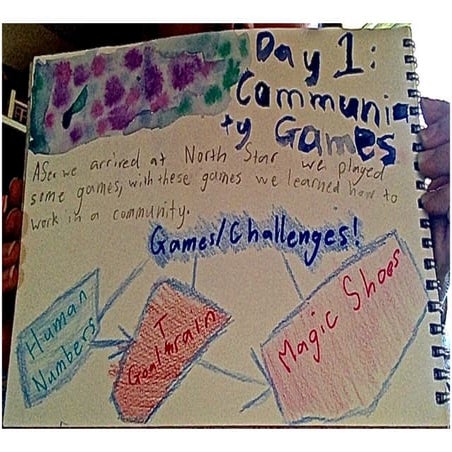 Day 1:
Communi
ty Games
we arrived at North Star we played
some games, with these games we learned how to
work in a community.
Games/Challenges!
Human
Numbers
I
Magic Shoes